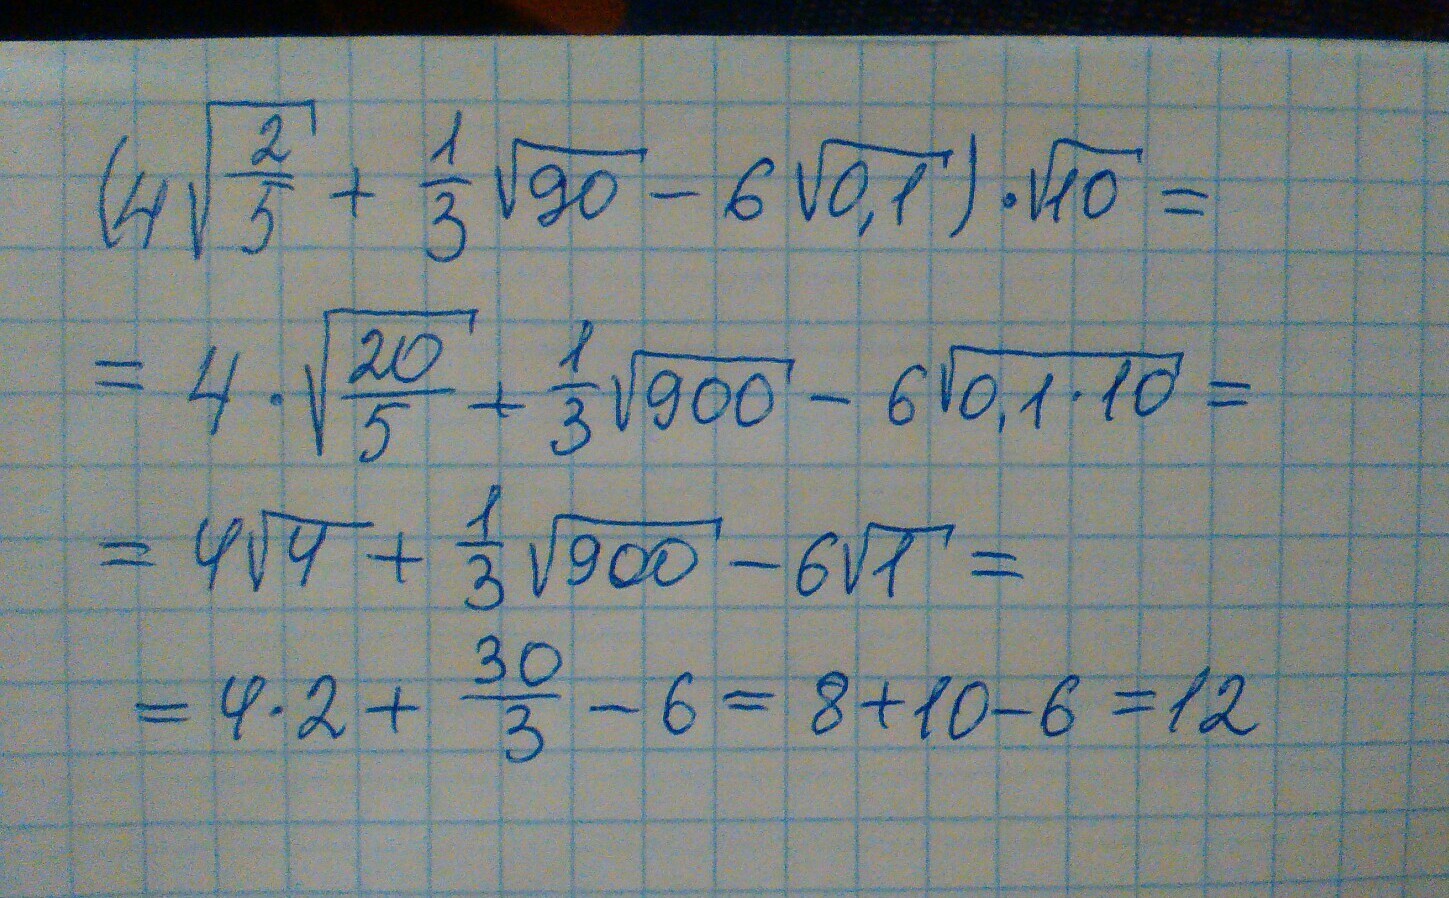 (4√(2/5) + 1/3 √90 − 6√0,1) · √10 =
= 4 · √(20/5) + 1/3 √900 − 6√(0,1·10) =
= 4√4 + 1/3 √900 − 6√1 =
= 4·2 + 30/3 − 6 = 8+10−6 = 12